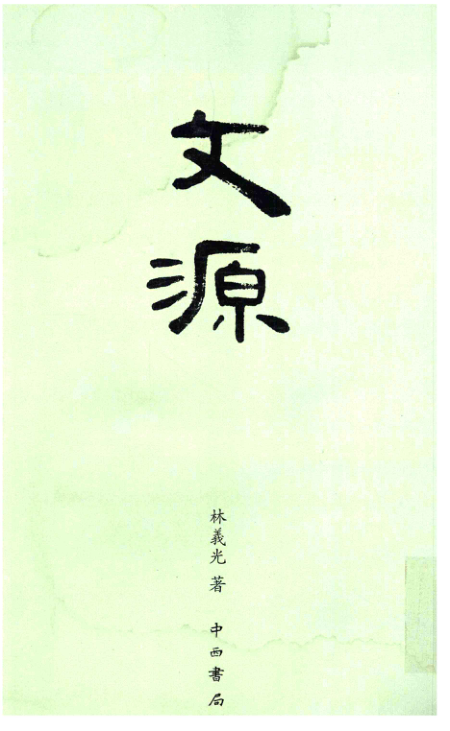 文源
林義光 著 中西書局